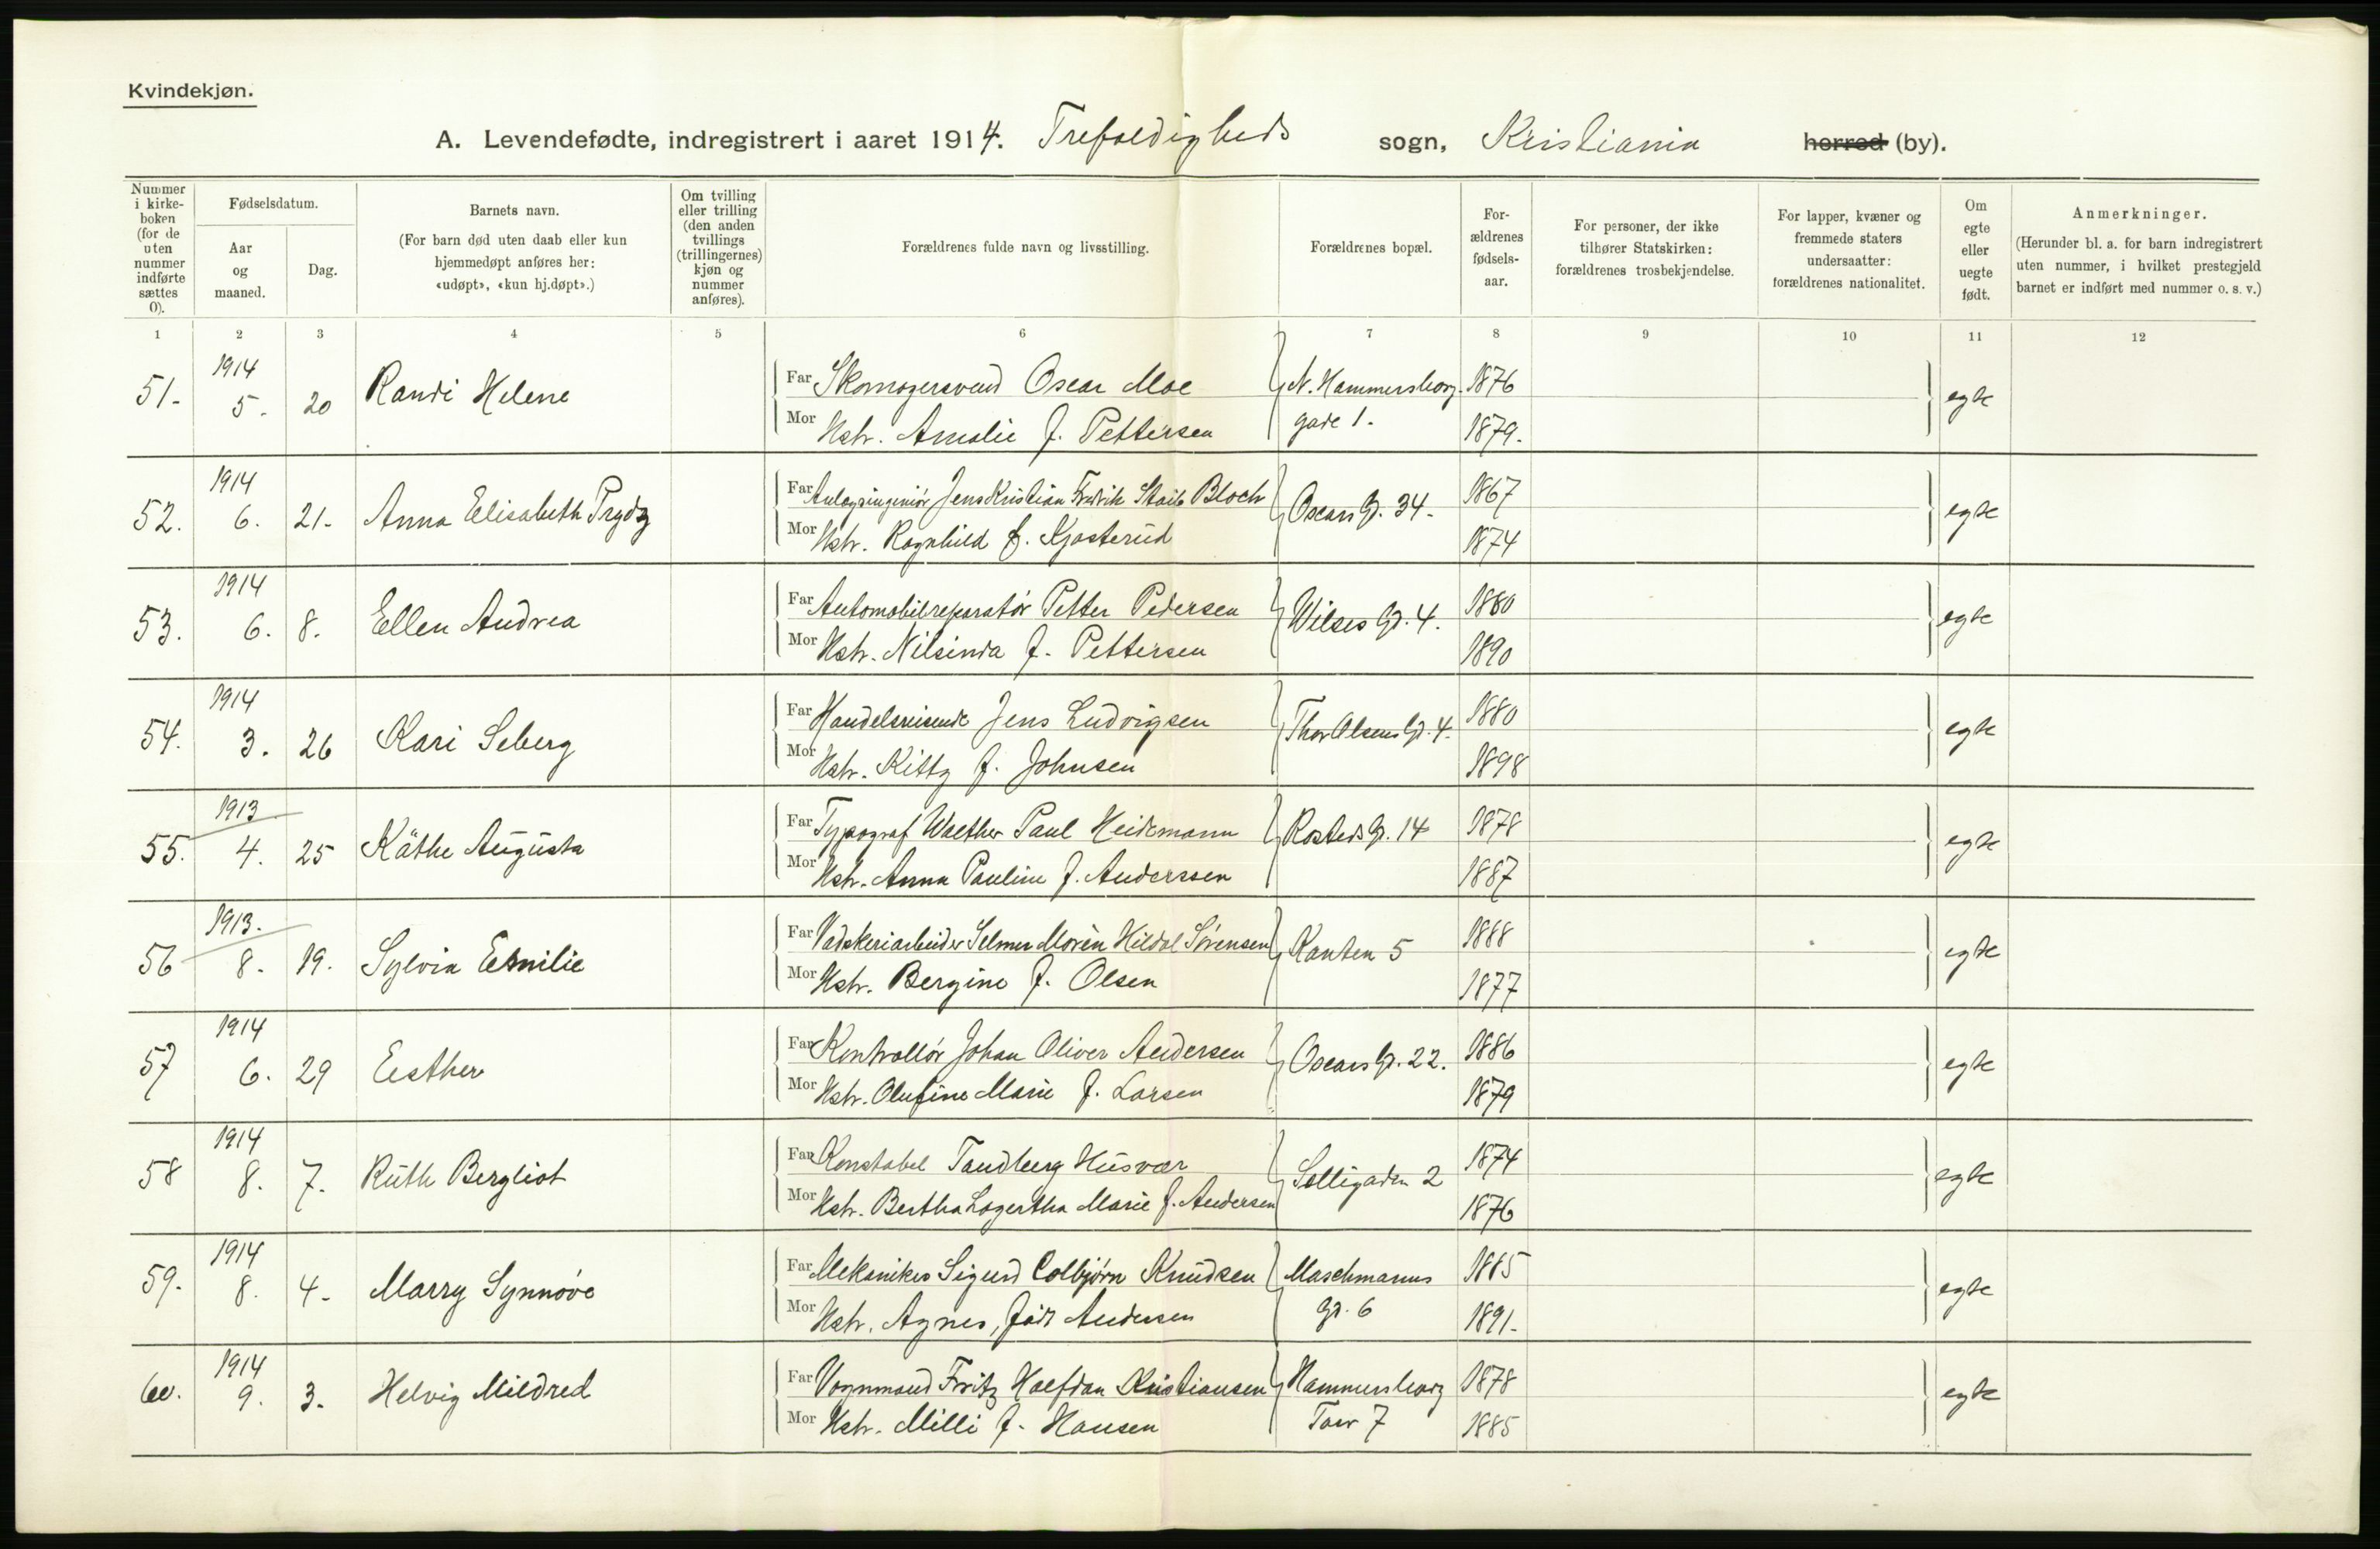 Kvindekjøn.
A. Levendefødte, indregistrert i aaret 1914. Trefoldigheds sogn, Kristiania herred (by).
Nummer i kirke-boken (for de uten nummer indførte sættes 0).
Fødselsdatum.
Aar og maaned.
Dag.
Barnets navn.
(For barn død uten daab eller kun hjemmedøpt anføres her: «udøpt», «kun hj.døpt».)
Om tvilling eller trilling (den anden tvillings (trillingernes) kjøn og nummer anføres).
Forældrenes fulde navn og livsstilling.
Forældrenes bopæl.
For-ældrenes fødsels-aar.
For personer, der ikke tilhører Statskirken: forældrenes trosbekjendelse.
For lapper, kvæner og fremmede staters undersaatter: forældrenes nationalitet.
Om egte eller uegte født.
Anmerkninger.
(Herunder bl. a. for barn indregistrert uten nummer, i hvilket prestegjeld barnet er indført med nummer o. s. v.)
1 2 3 4 5 6 7 8 9 10 11 12
51. 1914 5. 20 Randi Helene Far Skomagersvend Oscar Moe N. Hammersborg. 1876 egte
Mor Hstr. Amalie f. Pettersen gade 1. 1879.
52. 1914 6. 21. Anna Elisabeth Prydz Far Anlægsingeniør Jens Kristian Fredrik Staib Bloch Oscars G. 34. 1867 egte
Mor Hstr. Ragnhild f. Kjosterud 1874
53. 1914 6. 8. Ellen Andrea Far Automobilreparatör Petter Pedersen Wilses G. 4. 1880 egte
Mor Hstr. Nilsinda f. Pettersen 1890
54. 1914 3. 26 Kari Seberg Far Handelsreisende Jens Ludvigsen Thor Olsens G. 4. 1880 egte
Mor Hstr. Kitty f. Johnsen 1898
55. 1913 4. 25 Käthe Augusta Far Typograf Walther Paul Heidemann Rosteds G. 14 1878 egte
Mor Hstr. Anna Pauline f. Anderssen 1887
56 1913. 8. 19. Sylvia Emilie Far Vadskeriarbeider Selmer Morèn Hildol Sørensen Kanten 5 1888 egte
Mor Hstr. Bergine f. Olsen 1877
57 1914 6. 29 Esther Far Kontrollör Johan Oliver Andersen Oscars G. 22. 1886 egte
Mor Hstr. Olufine Marie f. Larsen 1879
58 1914 8. 7. Ruth Bergliot Far Konstabel Tandberg Husvær Solligaden 2 1874 egte
Mor Hstr. Bertha Lagertha Marie f. Andersen 1876
59. 1914 8. 4. Marry Synnöve Far Mekaniker Sigurd Colbjørn Knudsen Maschmanns 1885 egte
Mor Hstr. Agnes, född Andersen G. 6 1891.
60. 1914 9. 3. Helvig Mildred Far Vognmand Fritz Halfdan Kristiansen Hammersborg 1878 egte
Mor Hstr. Milli f. Hansen Torv 7 1885